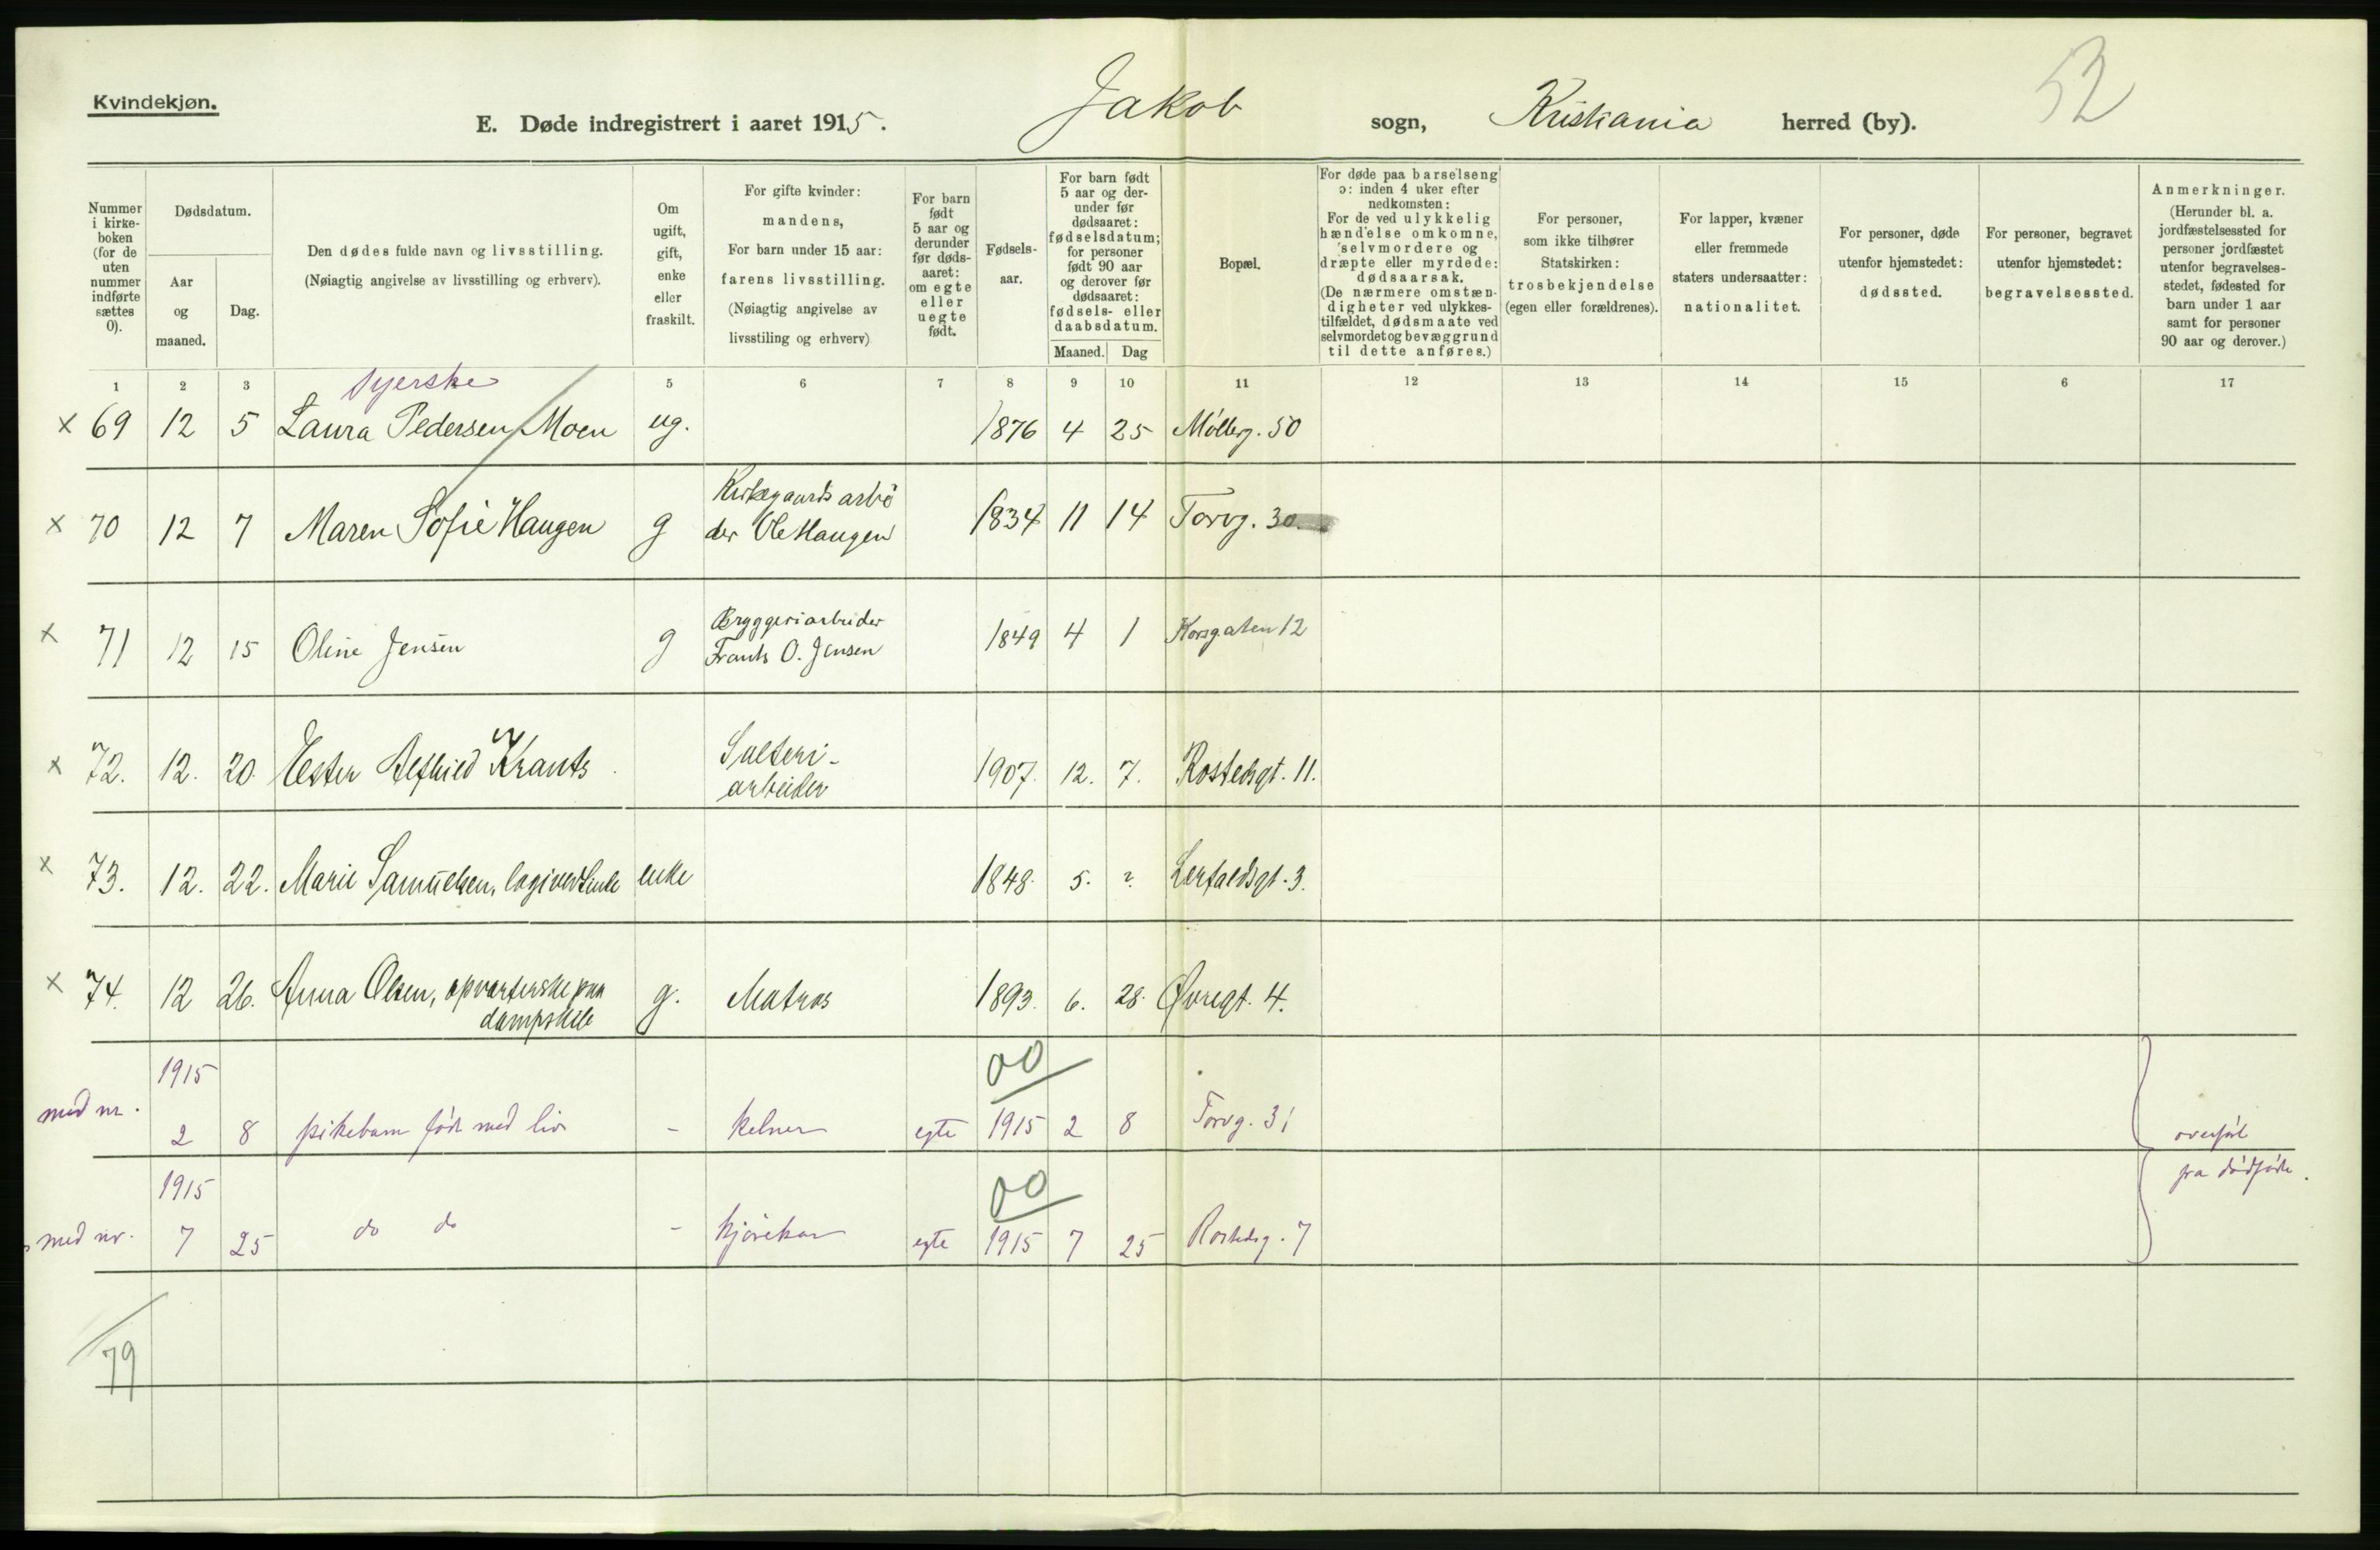 Kvindekjøn.
E. Døde indregistrert i aaret 1915. Jakob sogn, Kristiania herred (by). 52
Nummer i kirke-boken (for de uten nummer indførte sættes 0).
Dødsdatum.
Aar og maaned.
Dag.
Den dødes fulde navn og livsstilling.
(Nøiagtig angivelse av livsstilling og erhverv).
Om ugift, gift, enke eller fraskilt.
For gifte kvinder: mandens,
For barn under 15 aar: farens livsstilling.
(Nøiagtig angivelse av livsstiling og erhverv)
For barn født 5 aar og derunder før døds-aaret: om egte eller uegte født.
Fødsels-aar.
For barn født 5 aar og der-under før dødsaaret: fødselsdatum; for personer født 90 aar og derover før dødsaaret: fødsels- eller daabsdatum.
Maaned. Dag
Bopæl.
For døde paa barselseng ɔ: inden 4 uker efter nedkomsten: For de ved ulykkelig hændelse omkomne, selvmordere og dræpte eller myrdede: dødsaarsak. (De nærmere omstæn-digheter ved ulykkes-tilfældet, dødsmaate ved selvmordet og bevæggrund til dette anføres.)
For personer, som ikke tilhører Statskirken: trosbekjendelse (egen eller forældrenes).
For lapper, kvæner eller fremmede staters undersaatter: nationalitet.
For personer, døde utenfor hjemstedet: dødssted.
For personer, begravet utenfor hjemstedet: begravelsessted.
Anmerkninger. (Herunder bl. a. jordfæstelsessted for personer jordfæstet utenfor begravelses-stedet, fødested for barn under 1 aar samt for personer 90 aar og derover.)
1 2 3 5 6 7 8 9 10 11 12 13 14 15 6 17
syerske
x 69 12 5 Laura Pedersen Moen ug. 1876 4 25 Møllerg. 50
Kirkegaardsarbei
x 70 12 7 Maren Sofie Haugen g der Ole Haugen 1834 11 14 Torvg. 30
Bryggeriarbeider
x 71 12 15 Oline Jensen g Frants O. Jensen 1849 4 1 Korsgaten 12
Salteri-
x 72. 12. 20. Ester Alfhild Krants arbeider 1907. 12. 7. Rostedsgt. 11.
x 73. 12. 22. Marie Samuelsen, logivertinde enke 1848. 5. ?. Lerfaldsgt. 3.
x 74. 12 26. Anna Olsen, opvarterske paa g. Matros 1893. 6. 28. Øvregt. 4.
dampskib
1915 00
med nr. 2 8 pikebarn født med liv - kelner egte 1915 2 8 Torvg. 31 overført
1915 00 fra dødfødte.
med nr. 7 25 do do - kjørekar egte 1915 7 25 Rostedsg. 7
79